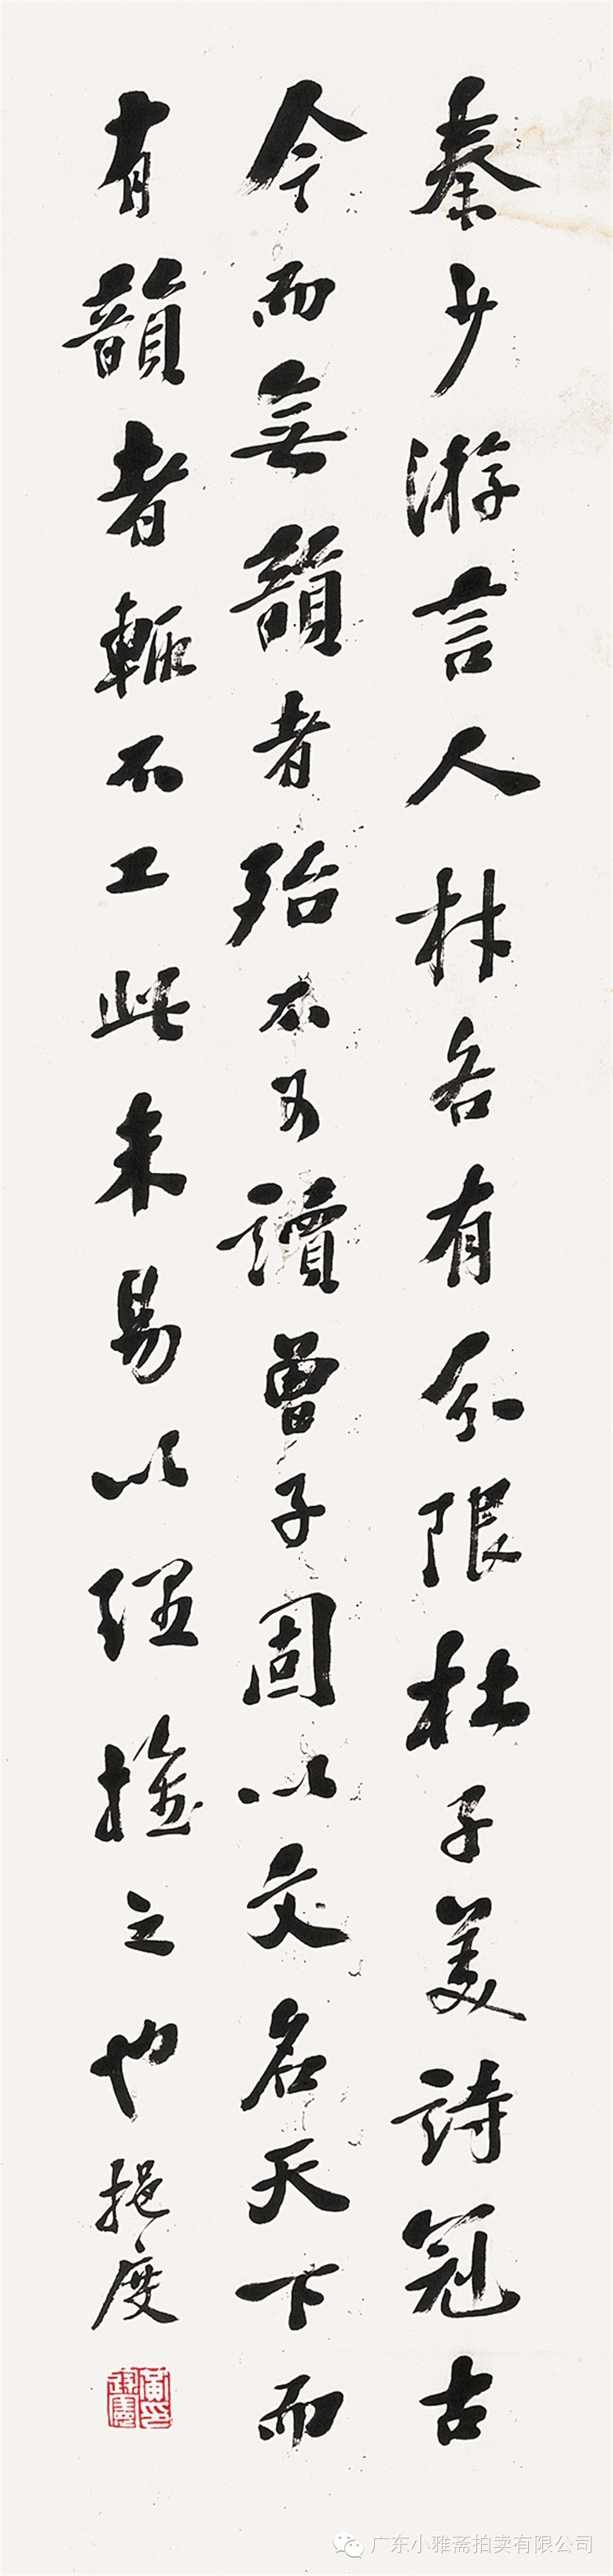 秦少游言人材各有分限杜子美詩冠古
今而無韻者殆不可讀曾子固以文名天下而
有韻者輒不工此未易以理推之也挹度
广东小雅斋拍卖有限公司